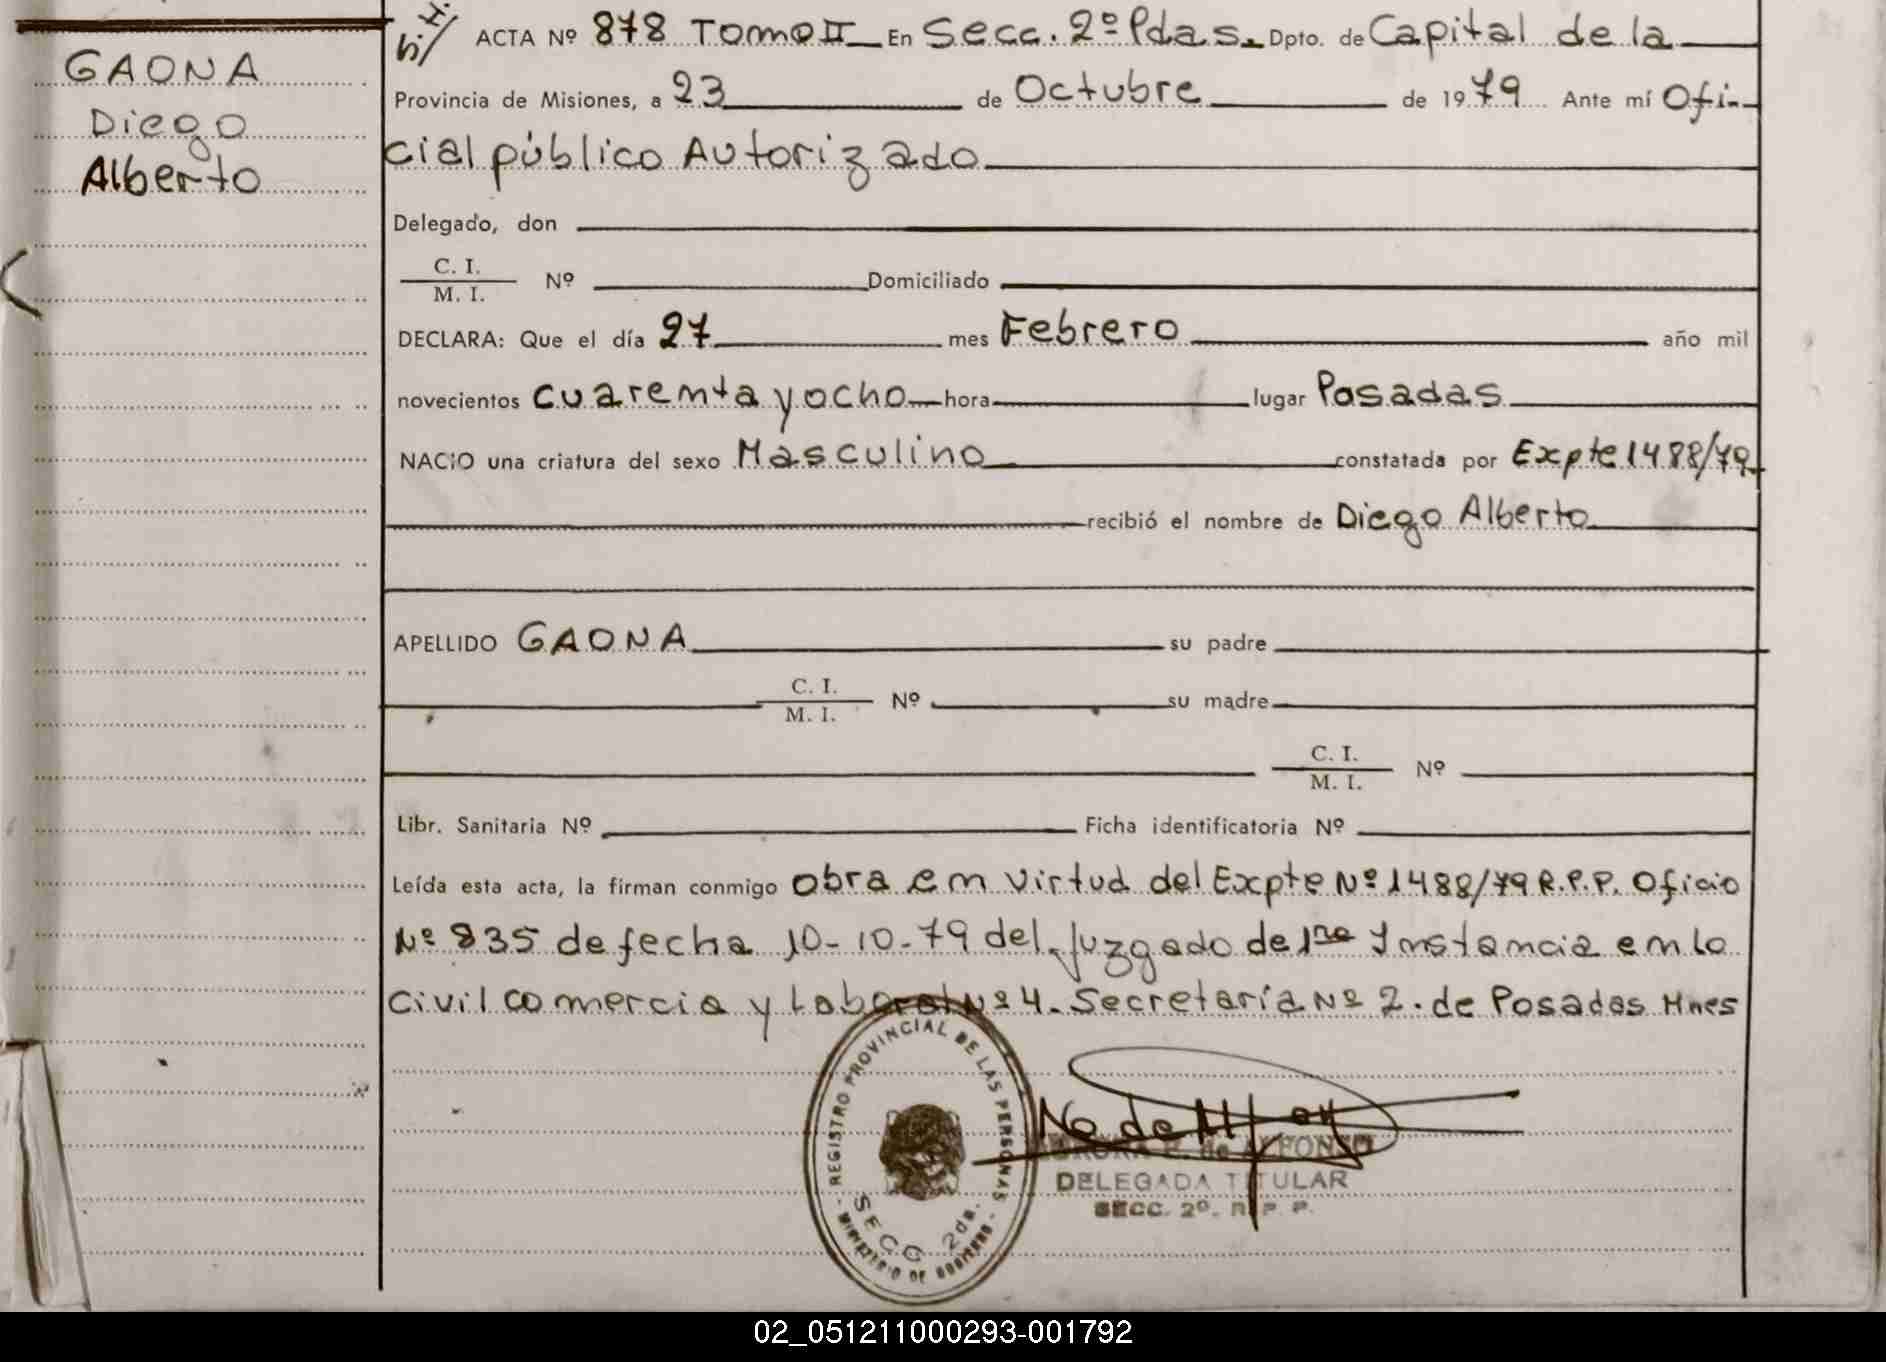 GAONA
Diego
Alberto
ACTA Nº 878 Tomo II En Secc. 2º Pdas. Dpto. de Capital de la
Provincia de Misiones, a 23 de Octubre de 1979 Ante mí Ofi-
cial público Autorizado
Delegado, don
C. I.
M. I. Nº Domiciliado
DECLARA: Que el día 27 mes Febrero año mil
novecientos cuarenta y ocho hora lugar Posadas
NACIO una criatura del sexo Masculino constatada por Expte 1488/79
recibió el nombre de Diego Alberto
APELLIDO GAONA su padre
C. I.
M. I. Nº su madre
C. I.
M. I. Nº
Libr. Sanitaria Nº Ficha identificatoria Nº
Leída esta acta, la firman conmigo obra en virtud del Expte Nº 1488/79 R.P.P. Oficio
Nº 835 de fecha 10-10-79 del Juzgado de 1ra Instancia en lo
Civil comercia y Laboral Nº 4. Secretaría Nº 2. de Posadas Mnes
REGISTRO PROVINCIAL DE LAS PERSONAS
SECC 2da.
MINISTERIO DE GOBIERNO
de ALFONZO
DELEGADA TITULAR
SECC. 2º. R. P. P.
02_051211000293-001792